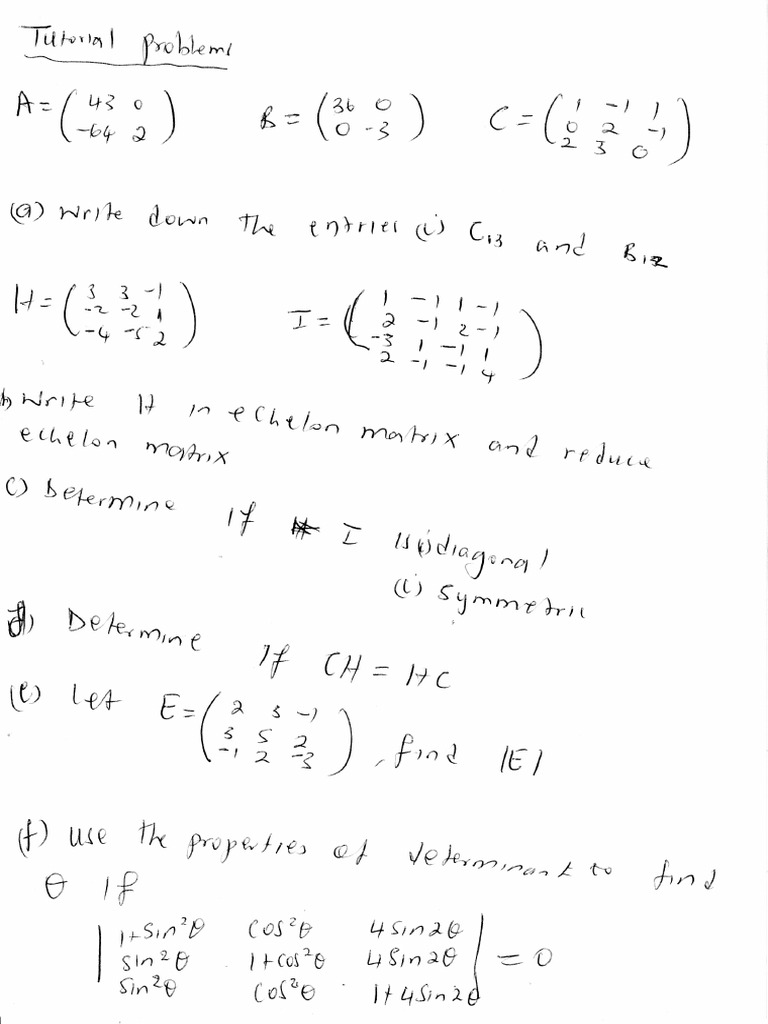 Tutorial problems
A = ( 43 0      B = ( 36 0      C = ( 1 -1 1
-64 2 )      0 -3 )      0 2 -1
2 3 0 )
(a) Write down the entries (i) C13 and B12
H = ( 3 3 -1      I = ( 1 -1 1 -1
-2 -2 1      2 -1 2 -1
-4 -5 2 )      -3 1 -1 1
2 -1 -1 4 )
b) Write H in echelon matrix and reduce
echelon matrix
c) Determine if I is (i) diagonal
(i) symmetric
d) Determine if CH = HC
(e) let E = ( 2 3 -1
3 5 2
-1 2 -3 ), find |E|
(f) use the properties of determinant to find
θ if
| 1+sin²θ cos²θ 4sin2θ
sin²θ 1+cos²θ 4sin2θ
sin²θ cos²θ 1+4sin2θ | = 0